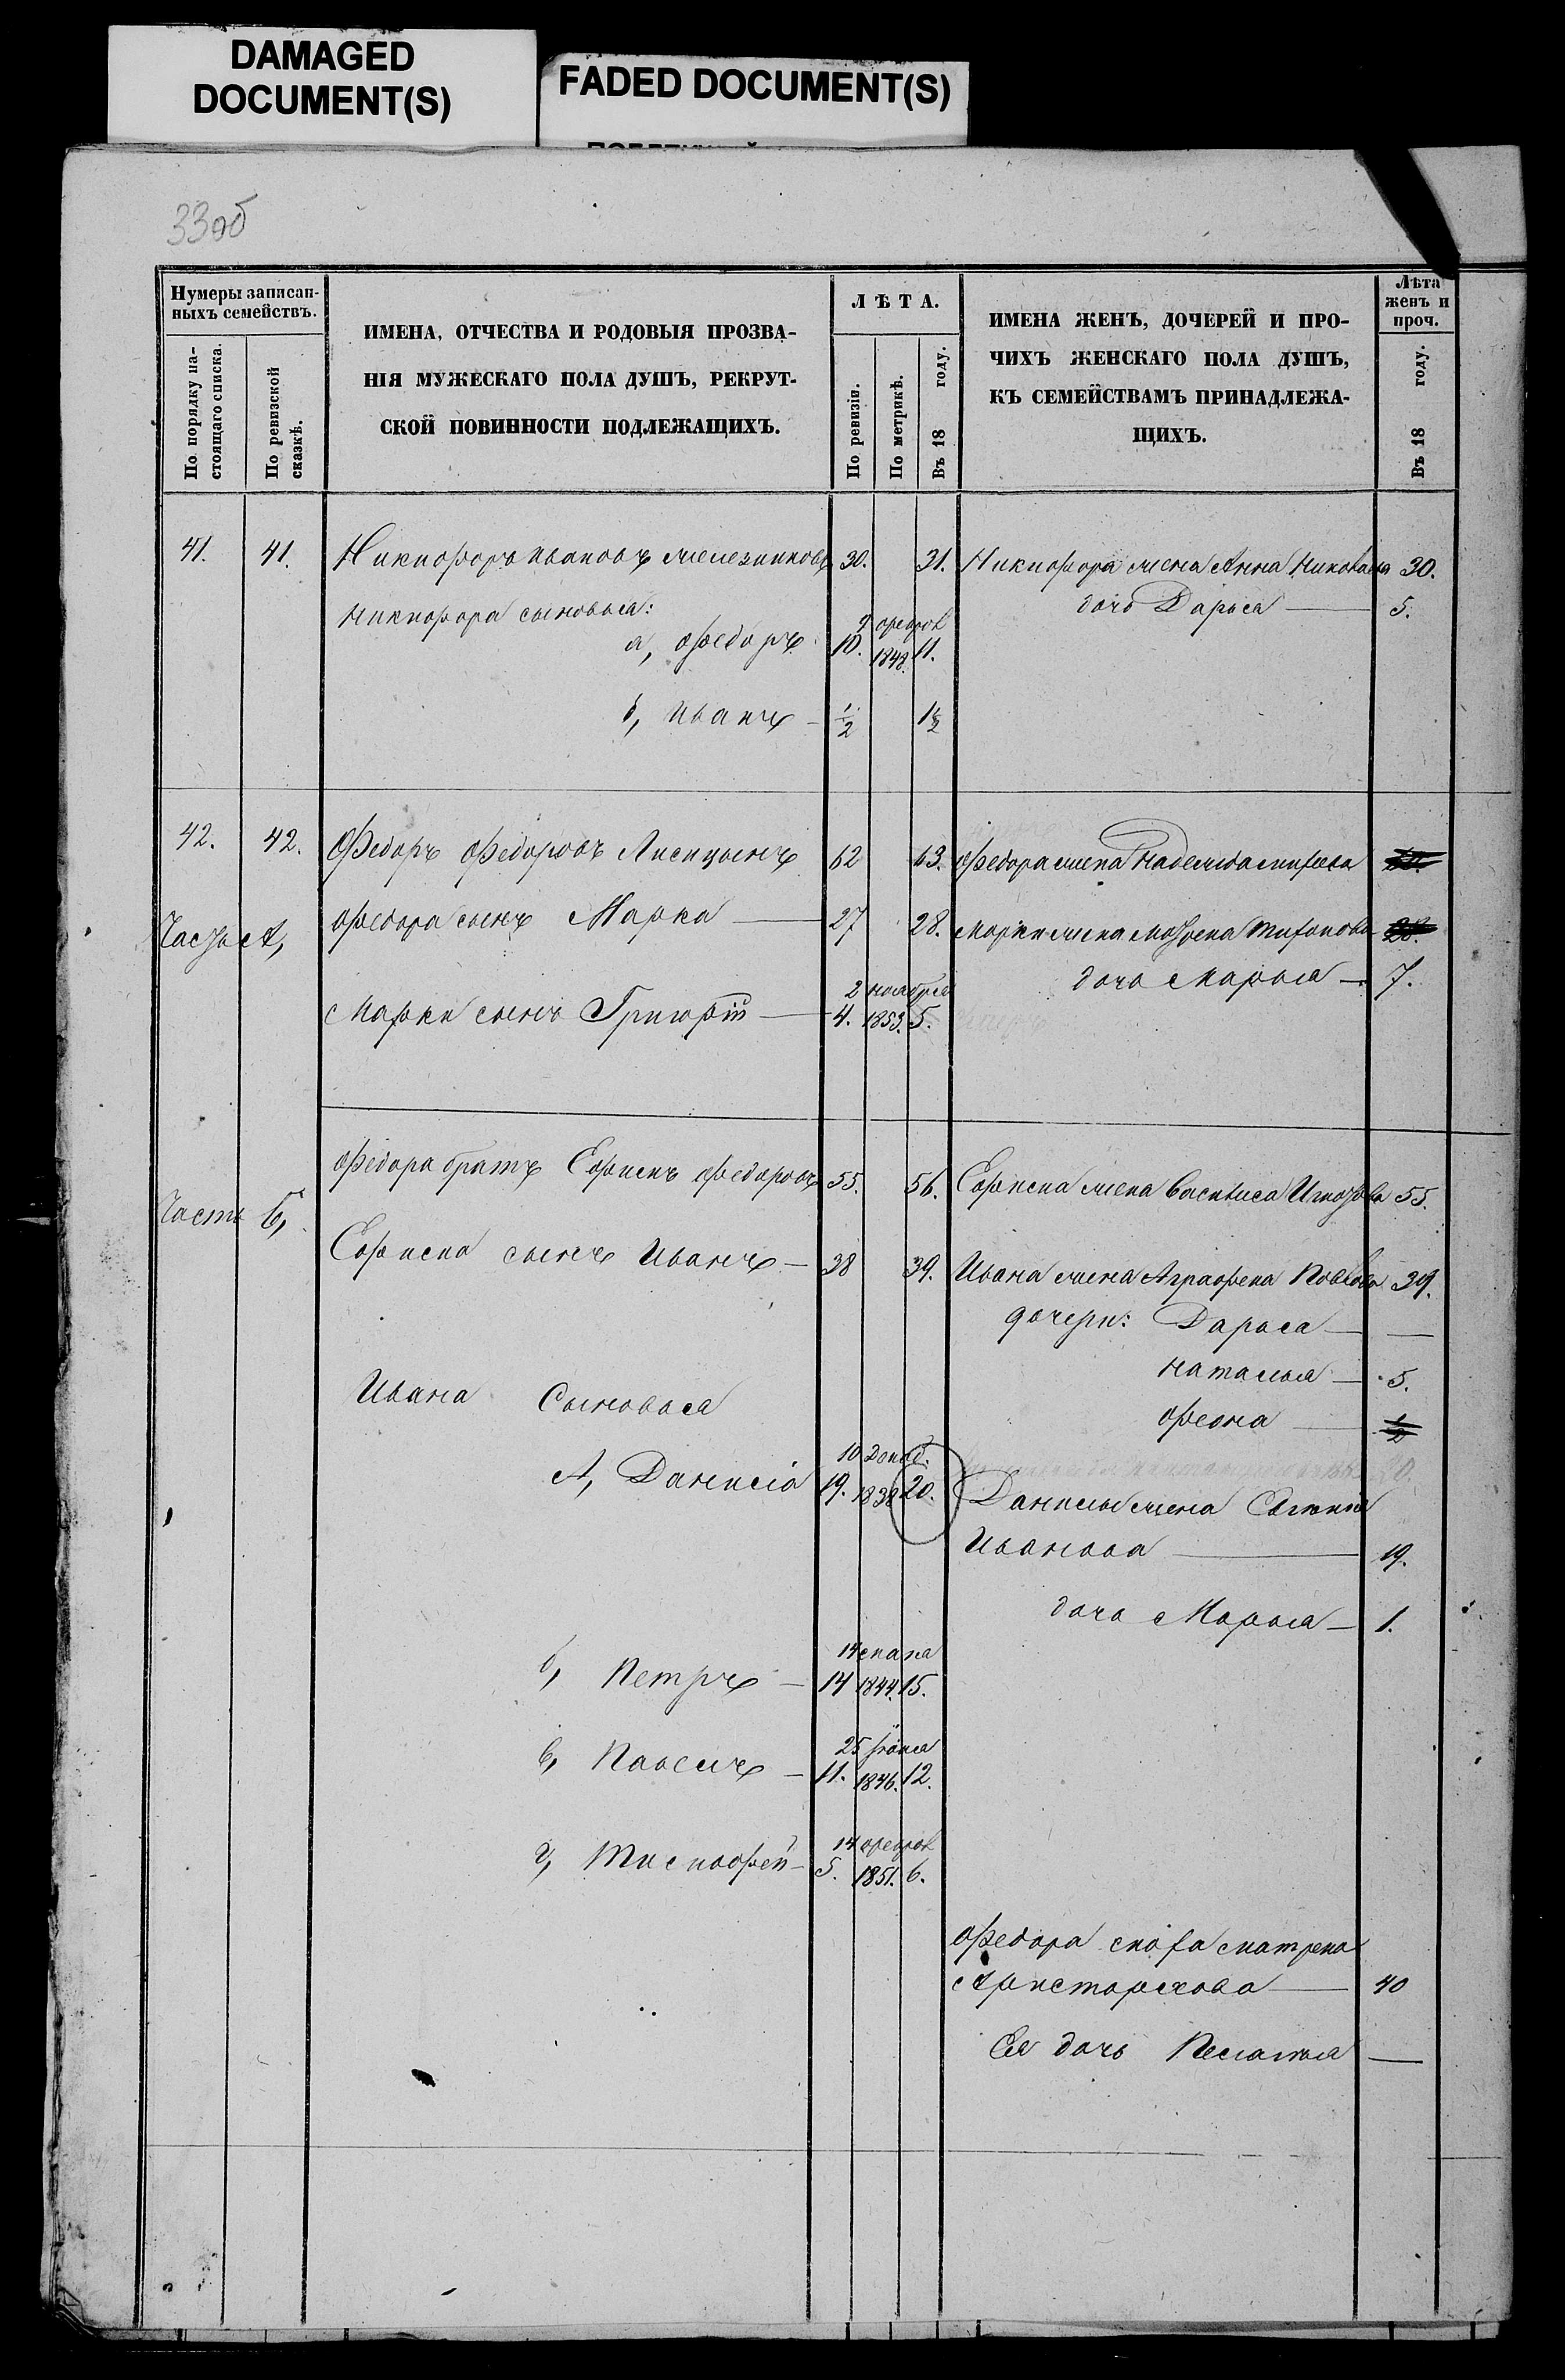 DAMAGED
DOCUMENT(S)
FADED DOCUMENT(S)
33об
Нумеры записан-
ныхъ семействъ.
По порядку на-
стоящаго списка.
По ревизской
сказкѣ.
ИМЕНА, ОТЧЕСТВА И РОДОВЫЯ ПРОЗВА-
НІЯ МУЖЕСКАГО ПОЛА ДУШЪ, РЕКРУТ-
СКОЙ ПОВИННОСТИ ПОДЛЕЖАЩИХЪ.
ЛѢТА.
По ревизіи.
По метрикѣ.
Въ 18 году.
ИМЕНА ЖЕНЪ, ДОЧЕРЕЙ И ПРО-
ЧИХЪ ЖЕНСКАГО ПОЛА ДУШЪ,
КЪ СЕМЕЙСТВАМЪ ПРИНАДЛЕЖА-
ЩИХЪ.
Лѣта
женъ и
проч.
Въ 18 году.
41. 41. Никифоръ Ивановъ Железниковъ 30. 31. Никифора жена Анна 30.
Никифора сыновья: дочь Дарья — 5.
а, Федоръ 10. 9 февр 1848. 11.
б, Иванъ — 1/2 1 1/2
42. 42. Федоръ Федоровъ Лисицынъ 62 63. Федора жена Надежда
Часть А, Федора сынъ Марка — 27 28. Марки жена 28.
дочь Марья — 7.
Марки сынъ Григорій — 4. 2 ноября 1853. 5.
Федора братъ Ефимъ Федоровъ 55. 56. Ефима жена Василиса 55.
Часть Б,
Ефима сынъ Иванъ — 38 39. Ивана жена Аграфена Павлова 39.
дочери: Дарья — —
Наталья — 5.
Ивана Сыновья
Фекла — 1/2
А, Данила 19. 10 Декаб. 1838 20. Данилы жена
Иванова — 19.
дочь Марья — 1.
б, Петръ — 14 14 1844. 15.
в, Павелъ — 11. 25 1846. 12.
г, Тимофей — 5. 14 февр 1851. 6.
Федора сноха Матрена
Аристархова — 40
Ея дочь Пелагея —